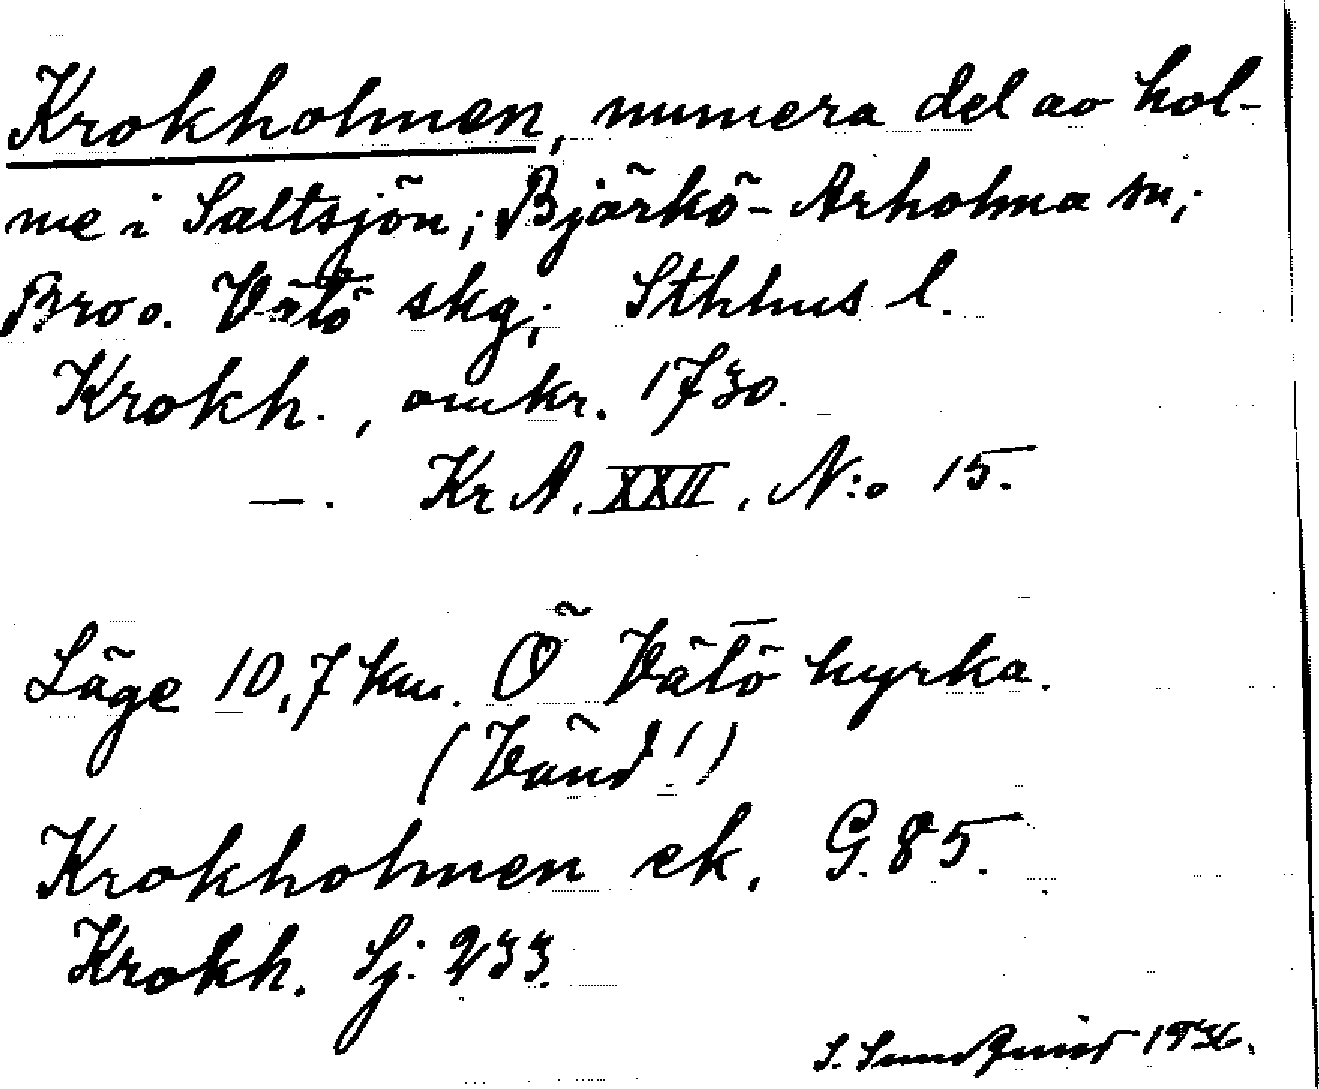 Krokholmen, numera del av hol-
me i Saltsjön; Björkö-Arholma sn;
Bro o. Vätö skg; Sthlms l.
Krokh., omkr. 1730.
—. Kr A. XXII. N:o 15.
Läge 10,7 km. Ö Vätö kyrka.
(Vänd!)
Krokholmen ek. G. 85.
Krokh. Sj: 233.
S. Sundquist 1936.